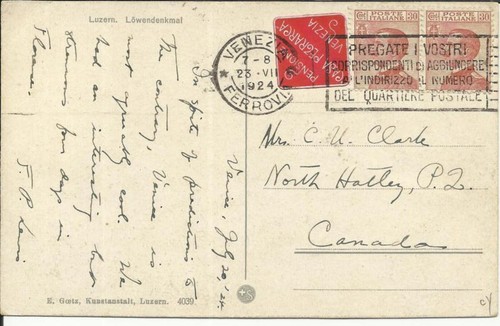 Luzern. Löwendenkmal
Venice, July 20, '24.
In spite of predictions to
the contrary, Venice is
most agreeably cool. We
had an interesting but
strenuous four days in
Florence.
PENSIONE
CASA PETRARCA
VENEZIA
VENEZIA
7-8
23·VII
1924
FERROVIA
POSTE ITALIANE
POSTE ITALIANE
PREGATE I VOSTRI
CORRISPONDENTI DI AGGIUNGERE
ALL'INDIRIZZO IL NUMERO
DEL QUARTIERE POSTALE
Mrs. C. U. Clarke
North Hatley, P.Q.
Canada
E. Goetz, Kunstanstalt, Luzern. 4039.